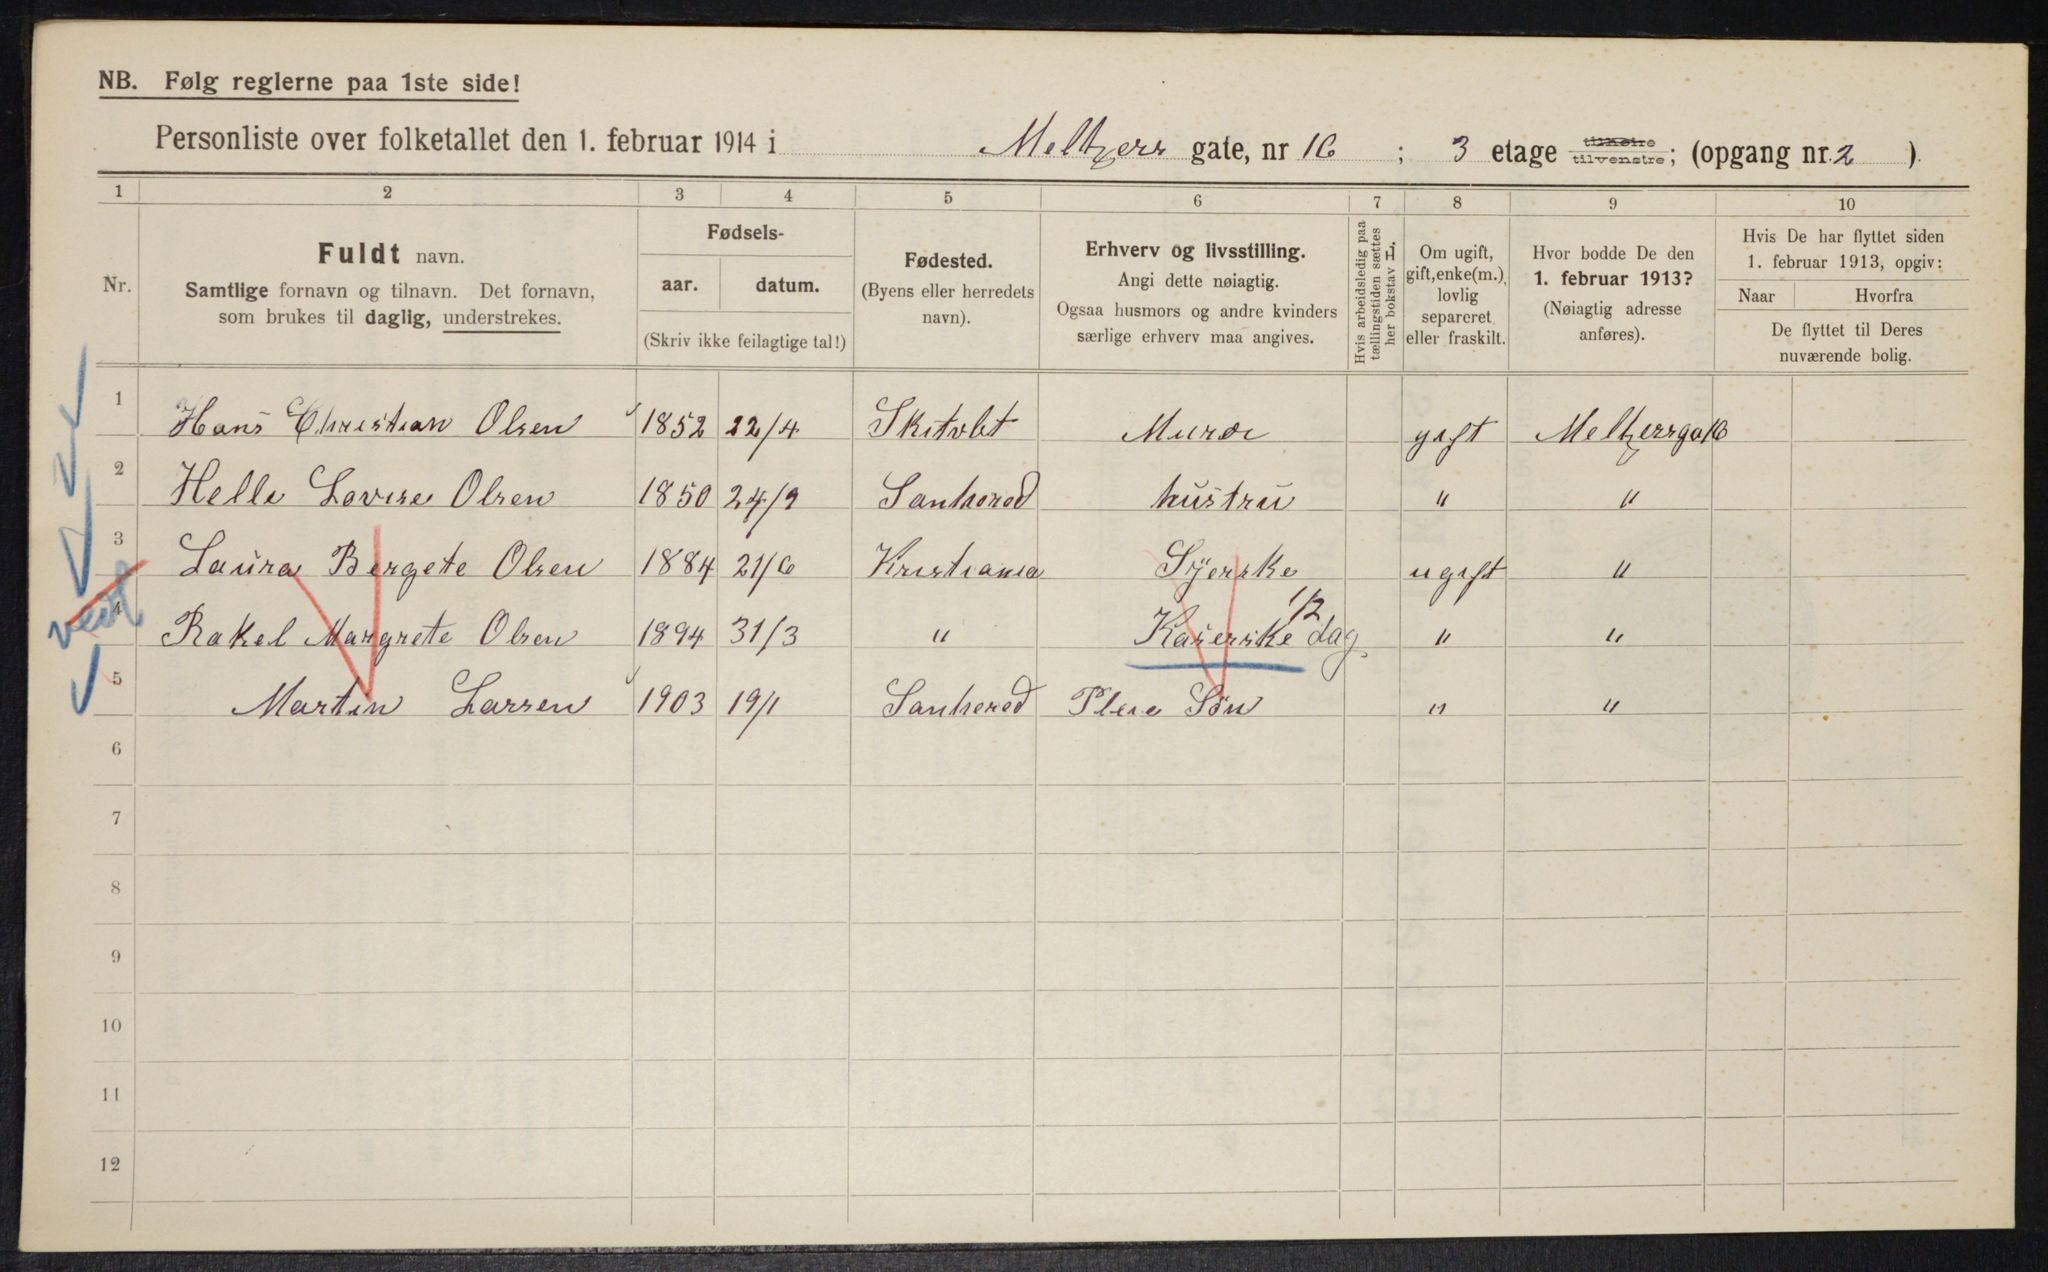 NB. Følg reglerne paa 1ste side!
Personliste over folketallet den 1. februar 1914 i Meltzers gate, nr 16 ; 3 etage tilhøire tilvenstre; (opgang nr. 2 ).
1 2 3 4 5 6 7 8 9 10
Nr.
Fuldt navn.
Samtlige fornavn og tilnavn. Det fornavn,
som brukes til daglig, understrekes.
Fødsels-
aar. datum.
(Skriv ikke feilagtige tal!)
Fødested.
(Byens eller herredets
navn).
Erhverv og livsstilling.
Angi dette nøiagtig.
Ogsaa husmors og andre kvinders
særlige erhverv maa angives.
Hvis arbeidsledig paa
tællingstiden sættes
her bokstav L.
Om ugift,
gift, enke(m.),
lovlig
separeret
eller fraskilt.
Hvor bodde De den
1. februar 1913?
(Nøiagtig adresse
anføres).
Hvis De har flyttet siden
1. februar 1913, opgiv:
Naar Hvorfra
De flyttet til Deres
nuværende bolig.
1 Hans Christian Olsen 1852 22/4 Skitvlt Murer gift Meltzersga 16
2 Helle Lovise Olsen 1850 24/9 Sanherod hustru " "
3 Laura Bergete Olsen 1884 21/6 Kristiania Syerske ugift "
4 Rakel Margrete Olsen 1894 31/3 " Kaserske 1/2 dag " "
5 Martin Larsen 1903 19/1 Sanherod Pleie Søn " "
6
7
8
9
10
11
12